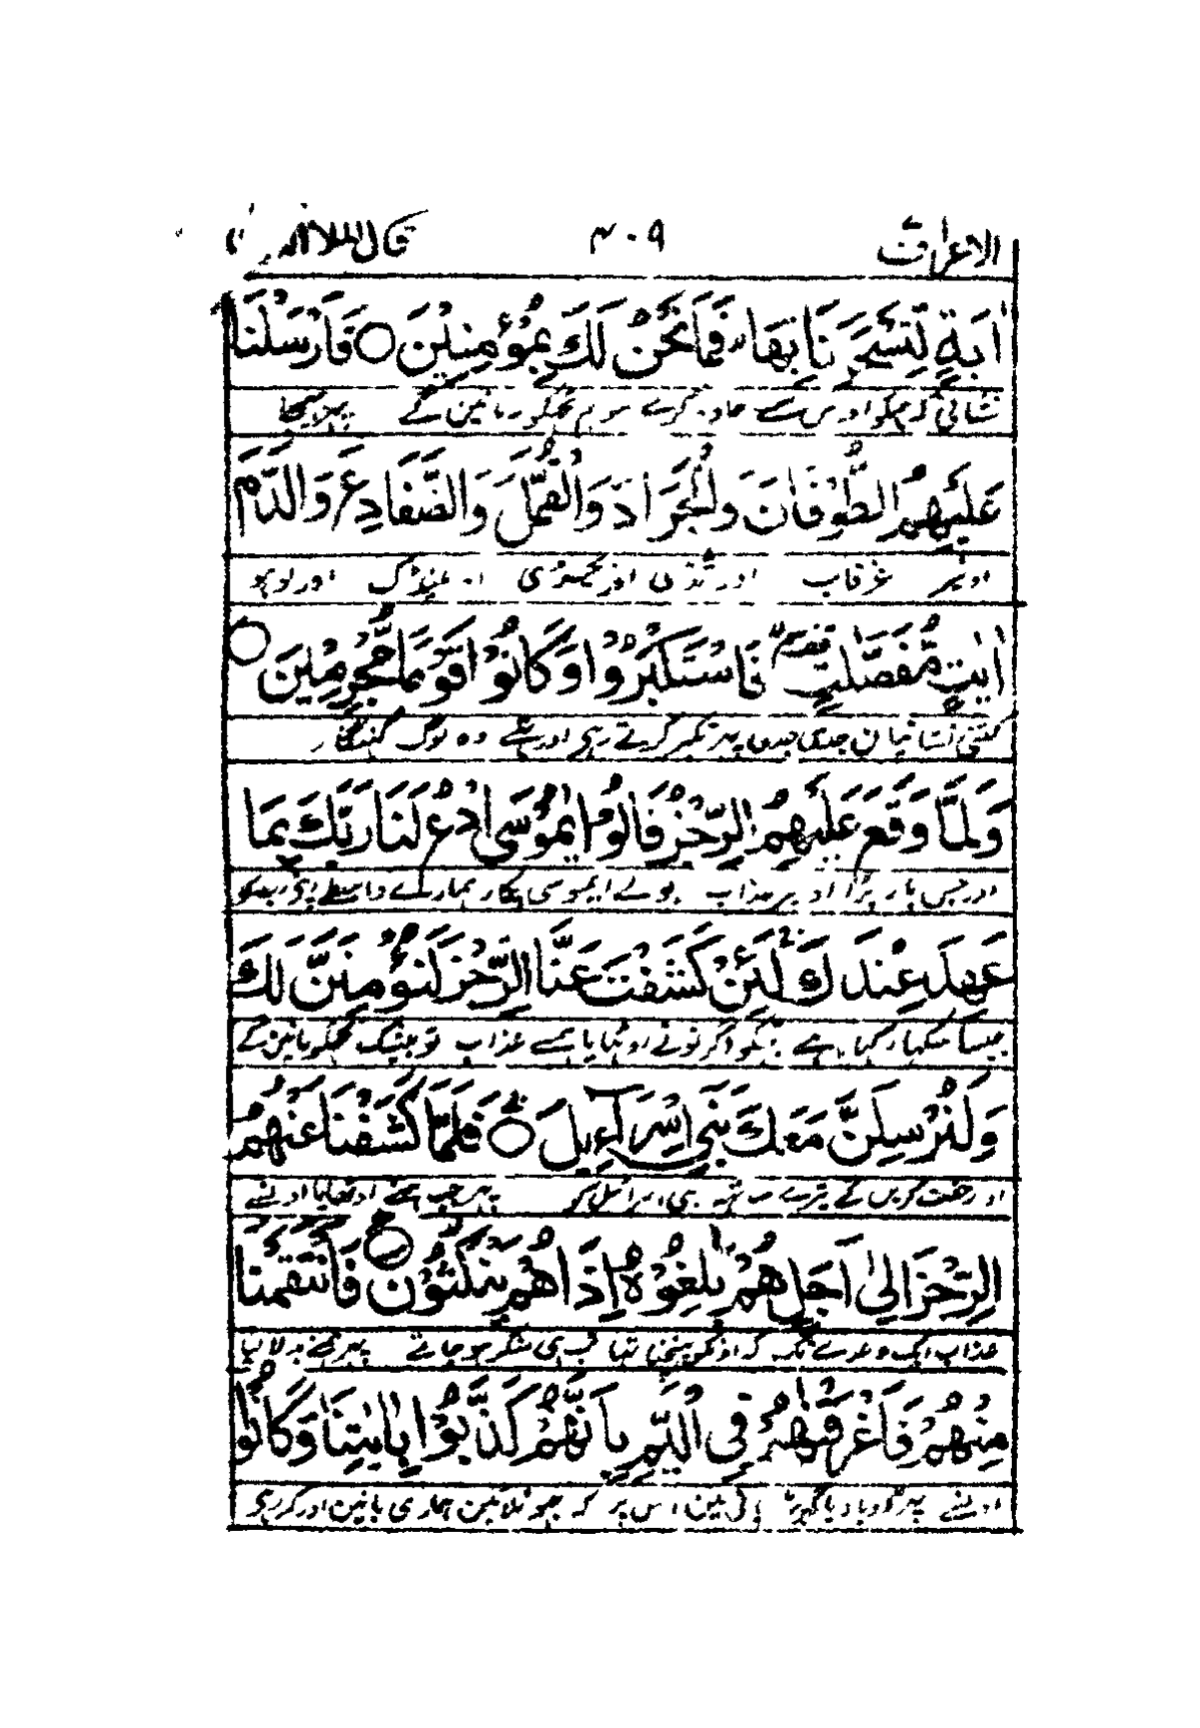 الاعراف ٣٠٩ قال الملا ٩
اٰيَةٍ لِّتَسْحَرَنَا بِهَا فَمَا نَحْنُ لَكَ بِمُؤْمِنِيْنَ ○ فَاَرْسَلْنَا
نشانی کہ ہمکو اوس سے جادو کرے سو ہم تجھکو نہ مانین گے پہر بھیجا
عَلَيْهِمُ الطُّوْفَانَ وَالْجَرَادَ وَالْقُمَّلَ وَالضَّفَادِعَ وَالدَّمَ
اونپر غرقاب اور ٹڈی اور چیچڑی اور مینڈک اور لوہو
اٰيٰتٍ مُّفَصَّلٰتٍ فَاسْتَكْبَرُوْا وَكَانُوْا قَوْمًا مُّجْرِمِيْنَ ○
کتنی نشانیان جدی جدی پہر تکبر کرتے رہی اور تھے وہ لوگ گنہگار
وَلَمَّا وَقَعَ عَلَيْهِمُ الرِّجْزُ قَالُوْا يٰمُوْسَى ادْعُ لَنَا رَبَّكَ بِمَا
اور جس بار پڑا اونپر عذاب بولے ایموسی پکار ہمارے واسطے اپنی رب کو
عَهِدَ عِنْدَكَ لَئِنْ كَشَفْتَ عَنَّا الرِّجْزَ لَنُؤْمِنَنَّ لَكَ
جیسا سکھا رکھا ہے تجکو اگر تونے اوٹھایا ہمسے عذاب تو بیشک تجھکو مانین گے
وَلَنُرْسِلَنَّ مَعَكَ بَنِيْ اِسْرَآءِيْلَ ○ فَلَمَّا كَشَفْنَا عَنْهُمُ
اور رخصت کریں گے تیرے ساتھ بنی اسرائیل کو پہر جب ہمنے اوٹھالیا اونسے
الرِّجْزَ اِلٰى اَجَلٍ هُمْ بٰلِغُوْهُ اِذَا هُمْ يَنْكُثُوْنَ ○ فَانْتَقَمْنَا
عذاب ایک وعدے تک کہ اونکو پہنچنا تہا تب ہی منکر ہو جاتے پہر ہمنے بدلا لیا
مِنْهُمْ فَاَغْرَقْنٰهُمْ فِى الْيَمِّ بِاَنَّهُمْ كَذَّبُوْا بِاٰيٰتِنَا وَكَانُوْا
اونسے پہر ڈوبا دیا گہرے پانی مین اس پر کہ جھوٹلائین ہماری باتین اور کر رہی